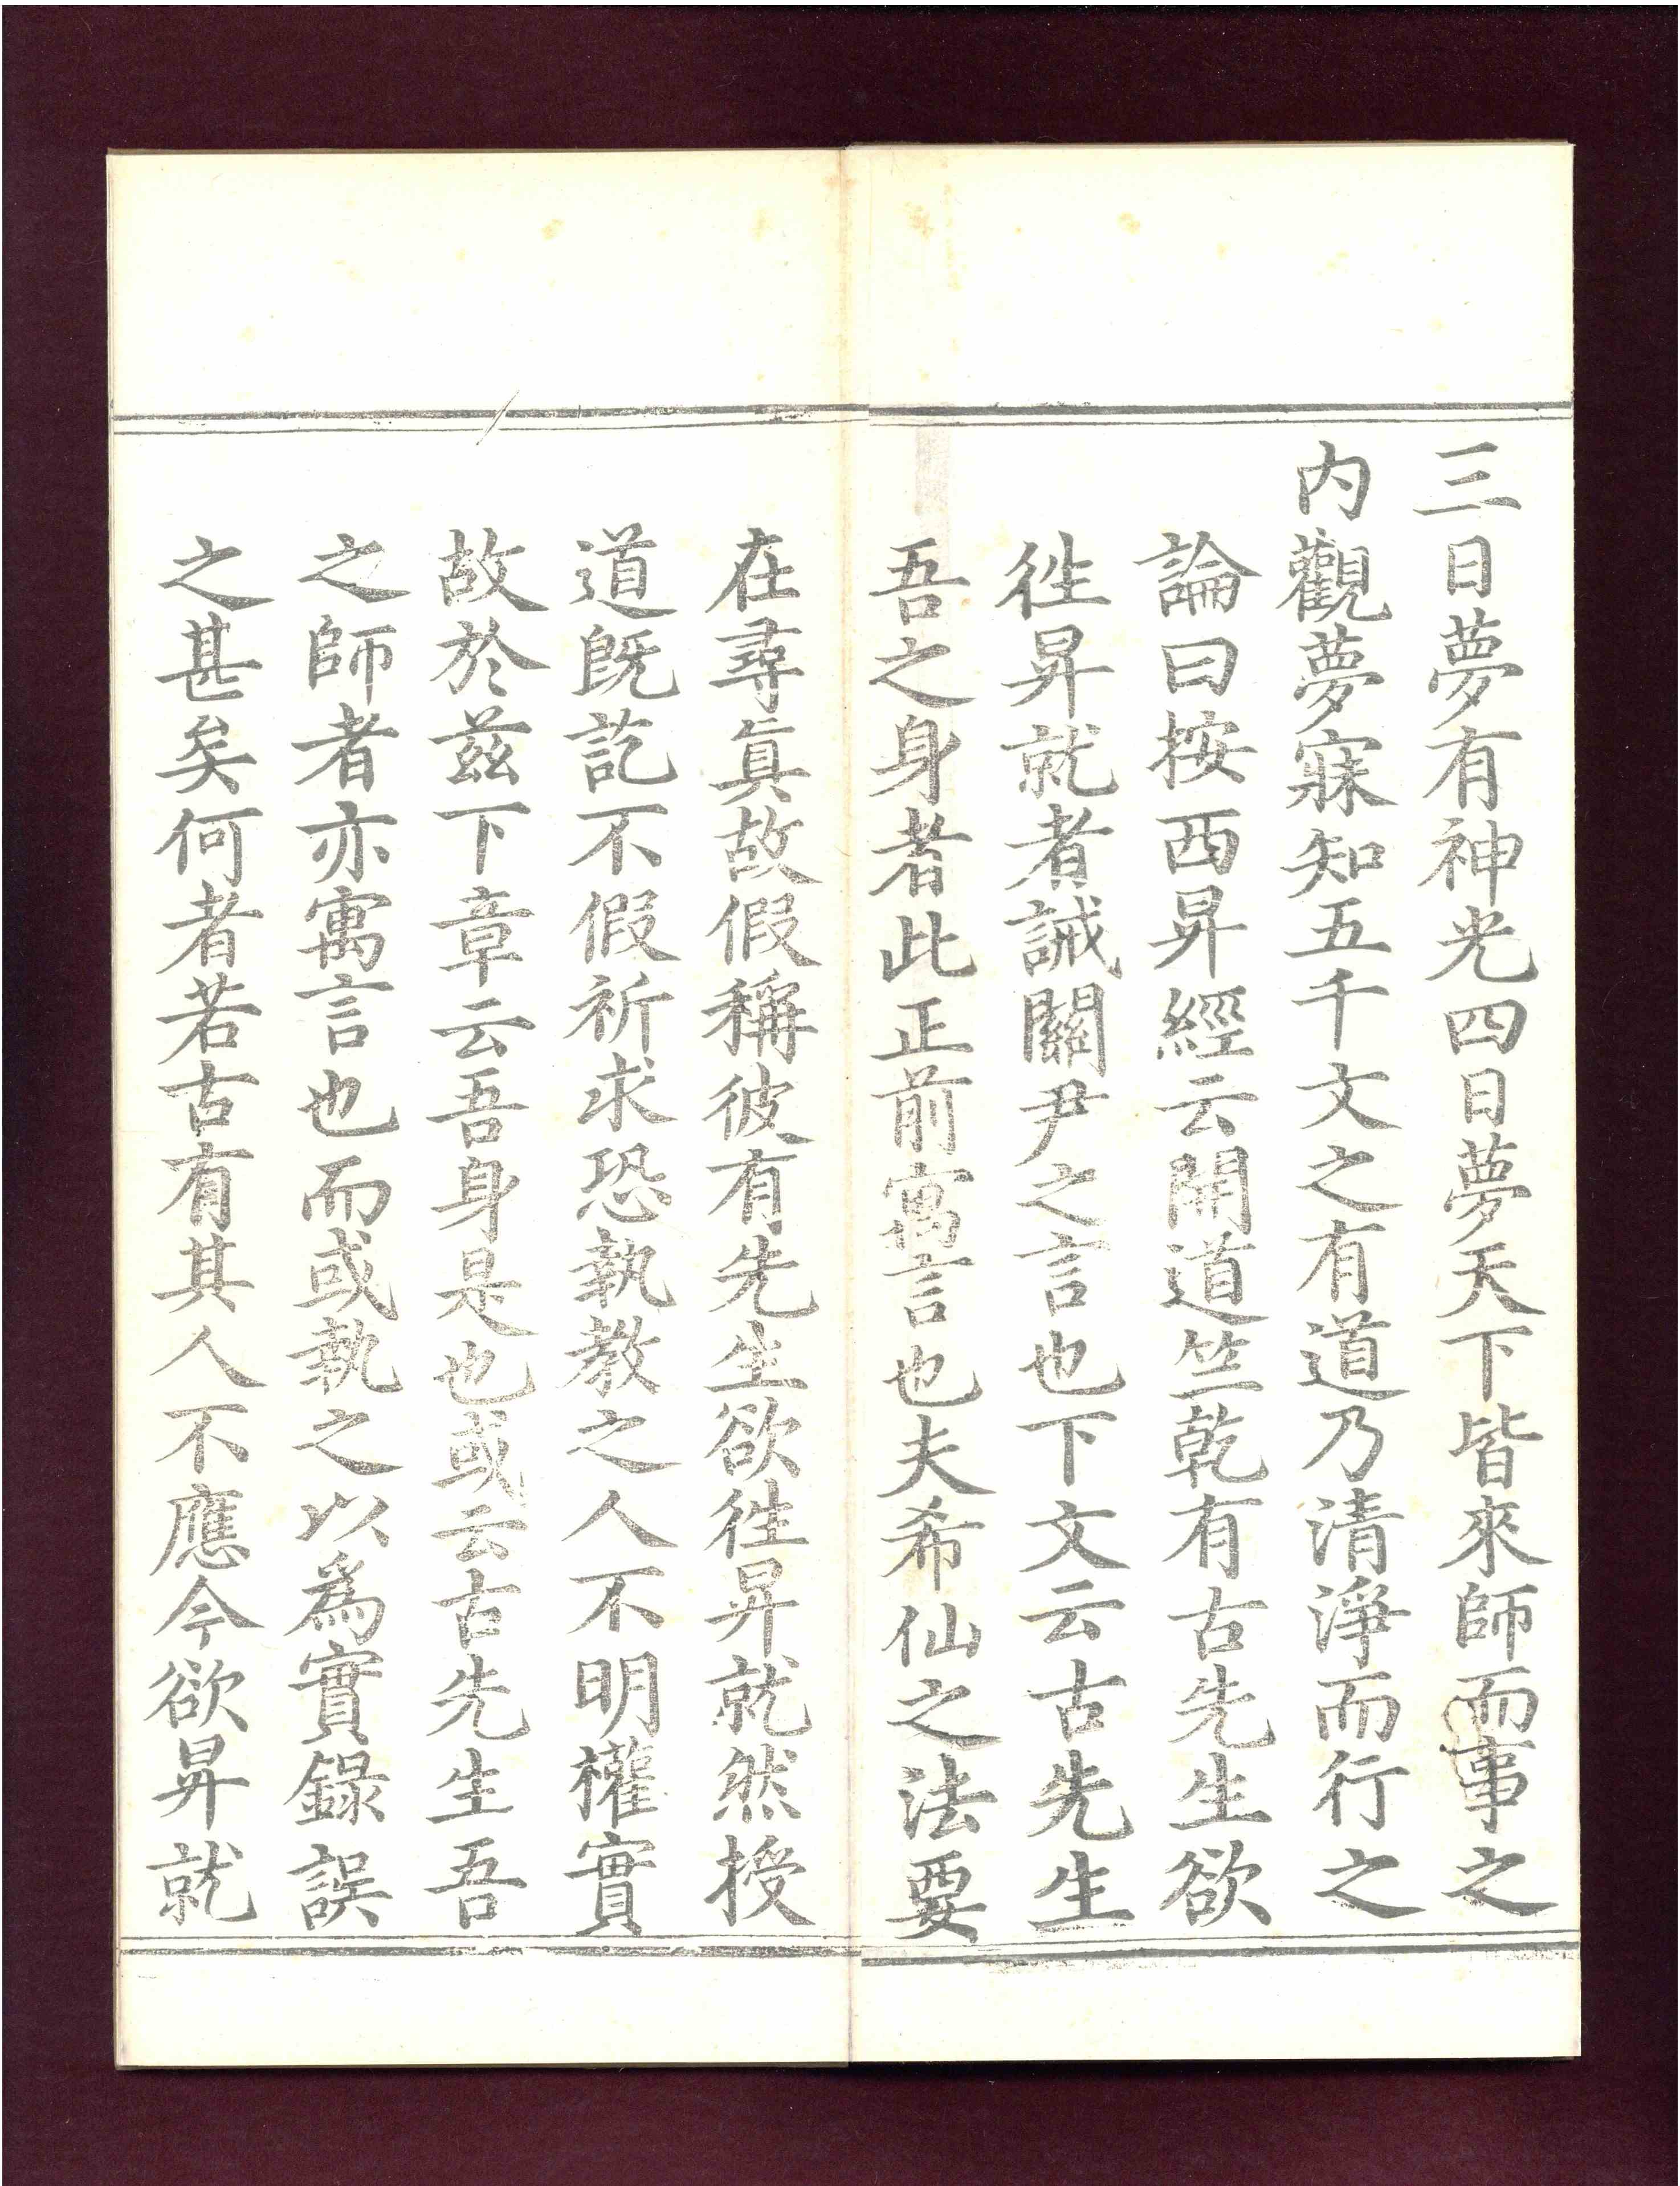 三日夢有神光四日夢天下皆來師而事之
内觀夢寐知五千文之有道乃清淨而行之
論曰按西昇經云開道竺乾有古先生欲
徃昇就者誡關尹之言也下文云古先生
吾之身者此正前寓言也夫希仙之法要
在尋眞故假稱彼有先生欲徃昇就然授
道旣訖不假祈求恐執教之人不明權實
故於兹下章云吾身是也或云古先生吾
之師者亦寓言也而或執之以為實錄誤
之甚矣何者若古有其人不應今欲昇就